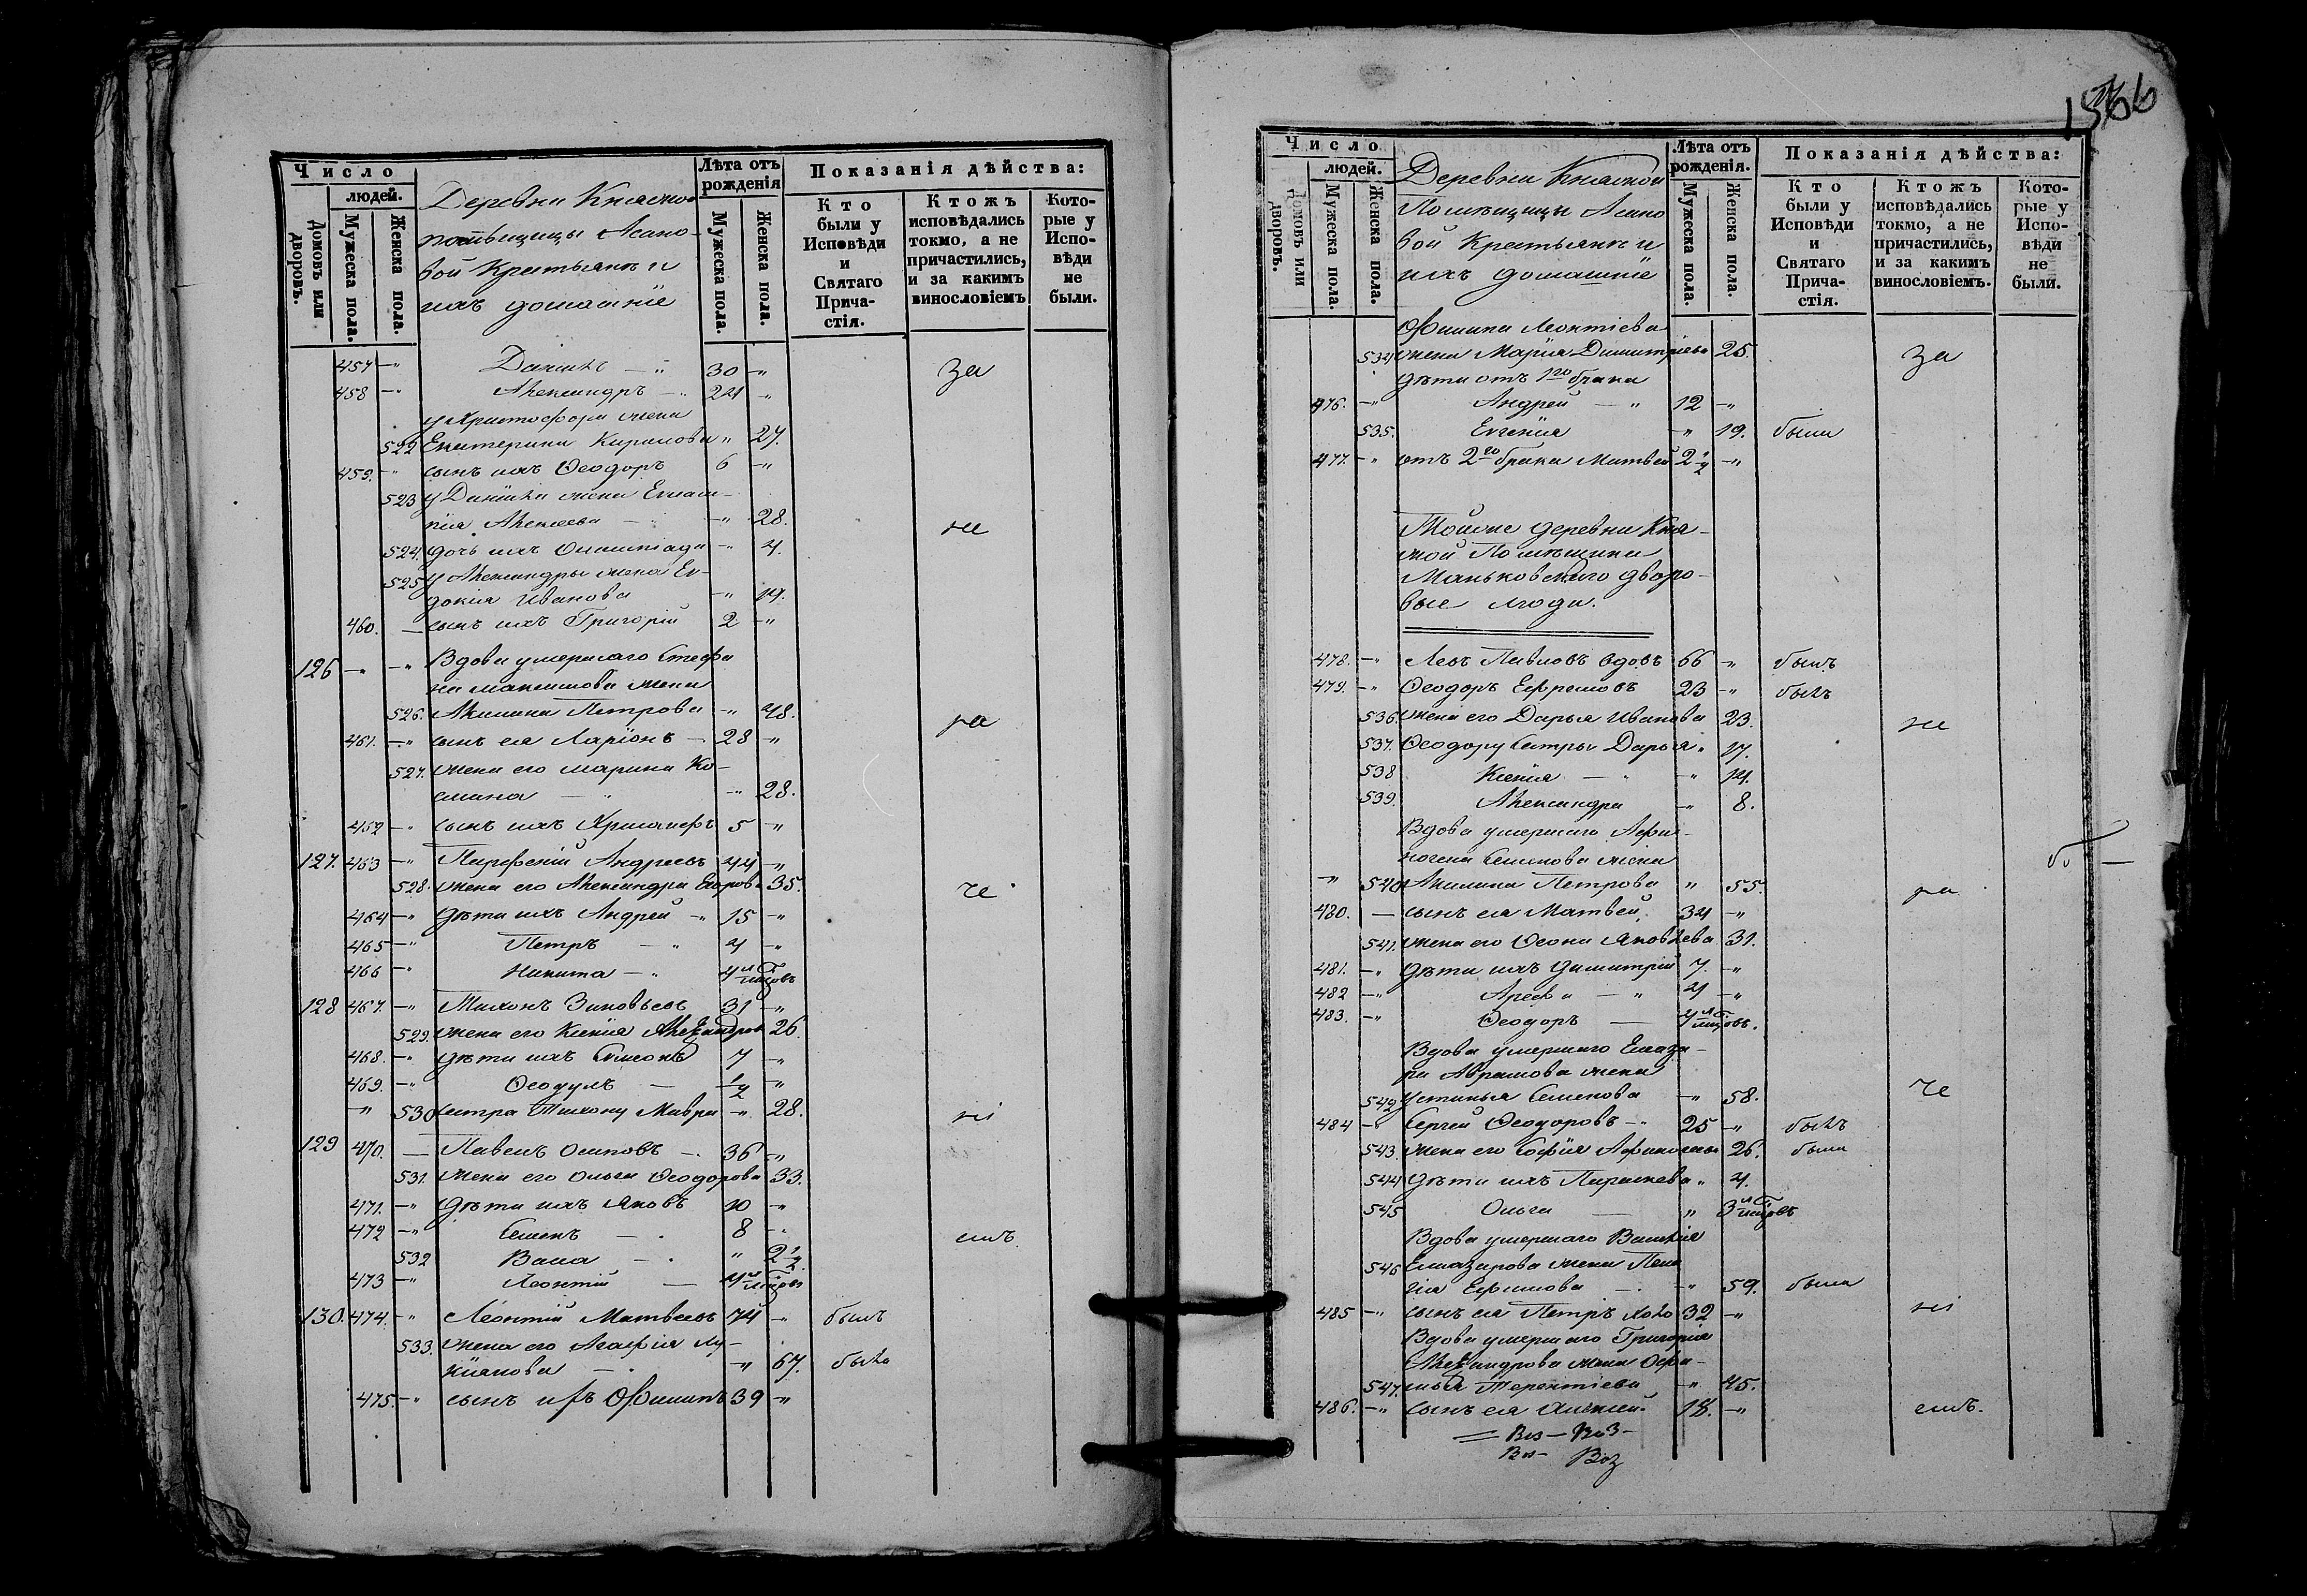 Число
людей.
Домовъ или дворовъ.
Мужеска пола.
Женска пола.
Деревни Княжной
помѣщицы Асано-
вой Крестьяне и
ихъ домашніе
Лѣта отъ рожденія
Мужеска пола.
Женска пола.
Показанія дѣйства:
Кто были у Исповѣди и Святаго Прича-стія.
Ктожъ исповѣдались токмо, а не причастились, и за какимъ винословіемъ
Кото-рые у Испо-вѣди не были.
457 -" Даніилъ -" 30 -" за
458 -" Александръ -" 24 -"
у Христофора жена
522 Екатерина Кирилова " 27.
459. -" сынъ ихъ Ѳеодоръ 6 -"
523 у Даніила жена Евлам-
пія Алексеева -" 28. не
524. дочь ихъ Олимпіада -" 4.
525 у Александры жена Ев-
докія Иванова -"
460. — сынъ ихъ Григорій 2 -"
126 -" -" Вдова умершаго Стефа
на Максимова жена
526. Акилина Петрова -" 48. ра
461. -" сынъ ея Ларіонъ - 28 -"
527. жена его Марина Ко-
смина -" 28.
462 -" сынъ ихъ Хрисанфъ 5 -"
127. 463 -" Парфеній Андреевъ 44 -"
528. жена его Александра Егорова 35. че
464 -" дѣти ихъ Андрей -" 15 -"
465 -" Петръ -" 4 -"
466 -" Никита -" 4 мцовъ
128 467. -" Тихонъ Зиновьевъ 31 -"
529. жена его Ксенія Александрова 26.
468. -" дѣти ихъ Симеонъ 7 -"
469. -" Ѳеодулъ — 1/2 -"
-" 530 сестра Тихону Мавра -" 28. ні
129 470. — Павелъ Осиповъ -. 36 -"
531. жена его Ольга Ѳеодорова 33.
471. -" дѣти ихъ Яковъ 10 -"
472 -" Семенъ -. 8 -. емъ.
532 Васа -. " 2 1/2
473 -" Леонтій — 4 мцовъ
130. 474. -" Леонтій Матвеевъ 74 -" былъ
533. жена его Агафія Лу-
кіанова -. -" 67. была
475. -" сынъ ихъ Филипъ 39 -"
1566
Число
людей.
Домовъ или дворовъ.
Мужеска пола.
Женска пола.
Деревни Княжной
Помѣщицы Асано
вой Крестьяне и
ихъ домашніе
Лѣта отъ рожденія.
Мужеска пола.
Женска пола.
Показанія дѣйства:
Кто были у Исповѣди и Святаго Прича-стія.
Ктожъ исповѣдались токмо, а не причастились, и за какимъ винословіемъ.
Кото-рые у Испо-вѣди не были.
Филипа Леонтіева
534 жена Марія Димитріева 25. за
дѣти отъ 1го брака
476. -" Андрей -" 12 -"
535. Евгенія -" 19. были
477. -" отъ 2го брака Матвей 2 1/2 -"
Тойже деревни Кня-
жной Помѣщика
Маньковскаго дворо-
вые люди.
478. -" Левъ Павловъ вдовъ 66 -" былъ
479. -" Ѳеодоръ Ефремовъ 23 -" былъ
536. жена его Дарья Иванова 23. не
537. Ѳеодору сестры Дарья " 17.
538 Ксенія -"
539. Александра -" 8.
Вдова умершаго Афи-
ногена Семенова жена
-" 540 Акилина Петрова " 55. ра
480. — сынъ ея Матвей, 34 -"
541. жена его Ѳеона Яковлева 31.
481. -" дѣти ихъ Димитрій 7. -"
482 -" Арефа -" 4 -"
483. -" Ѳеодоръ — 4 мцовъ.
Вдова умершаго Елеаза-
ра Аврамова жена
542 Устинья Семенова -" 58. че
484 -" Сергей Ѳеодоровъ -" 25 -" былъ
543. жена его Софія Афиногенова 26. была
544 дѣти ихъ Параскева " 4.
545 Ольга — " 3 мцовъ
Вдова умершаго Василія
546 Елеазарова жена Пела
гія Ефимова -. -" 59. была
485 -" сынъ ея Петръ холо 32 -" ні
Вдова умершаго Григорія
Александрова жена Офи-
547. мья Терентіева -" 45.
486. -" сынъ ея Алексей. 18. -" емъ.